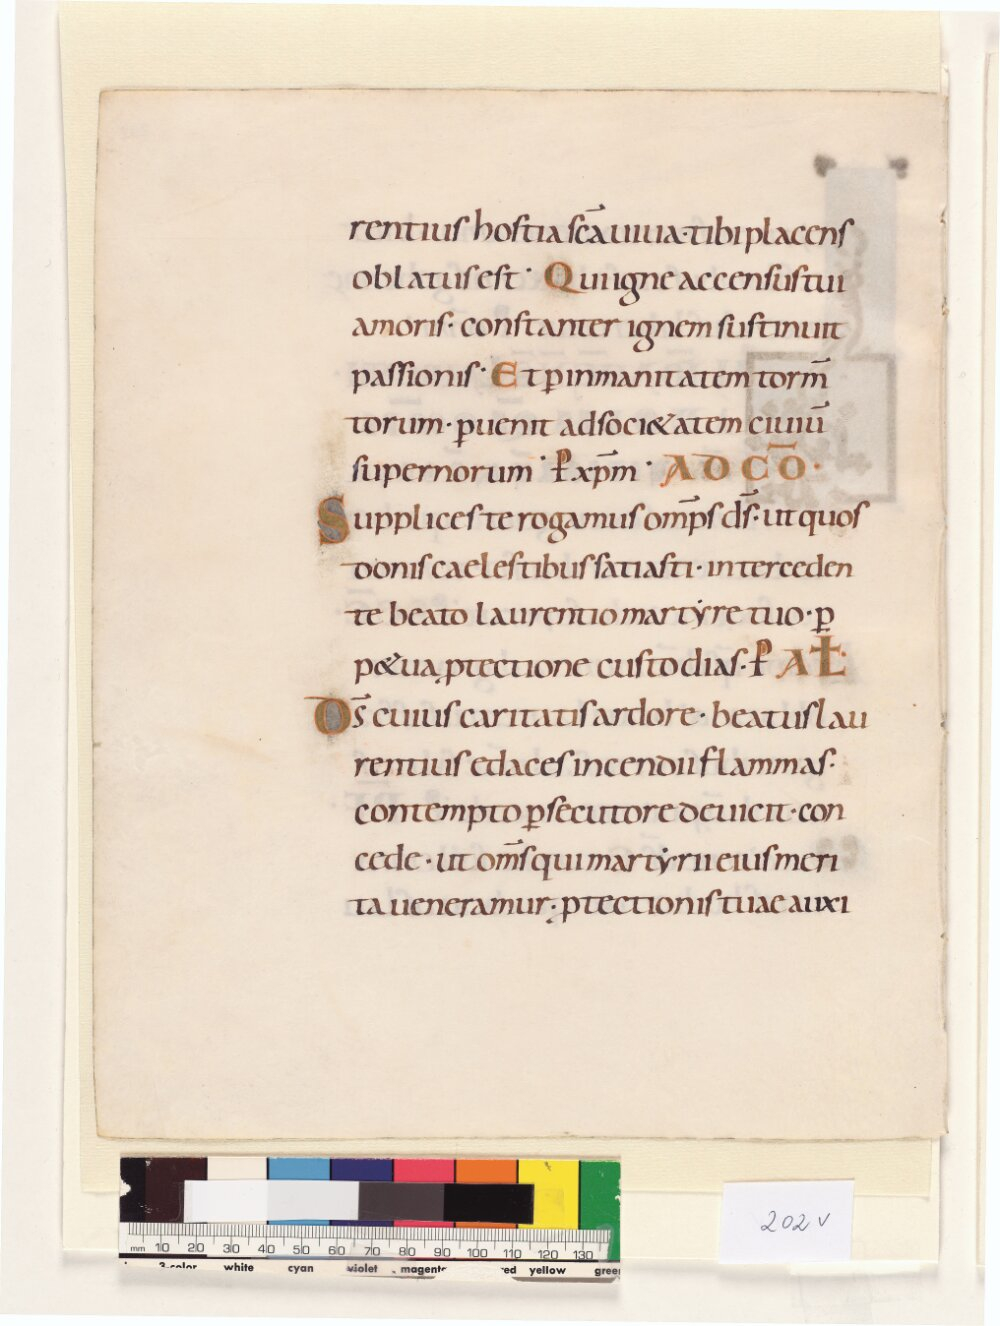 rentius hostia scā uiua · tibi placens
oblatus est · Qui igne accensus tui
amoris · constanter ignem sustinuit
passionis · Et p̄ inmanitatem torm̄
torum · puenit ad soci&atem ciuiū
supernorum · P xp̄m · AD CŌ ·
Supplices te rogamus omp̄s ds̄ · ut quos
donis caelestibus satiasti · interceden
te beato laurentio martẏre tuo · p̄
p&ua ptectione custodias · P AL̄ ·
Ds̄ cuius caritatis ardore · beatus lau
rentius edaces incendii flammas ·
contempto p̄secutore deuicit · con
cede · ut om̄s qui martẏrii eius meri
ta ueneramur · ptectionis tuae auxi
202 v
mm 10 20 30 40 50 60 70 80 90 100 110 120 130
3-color white cyan violet magenta red yellow green